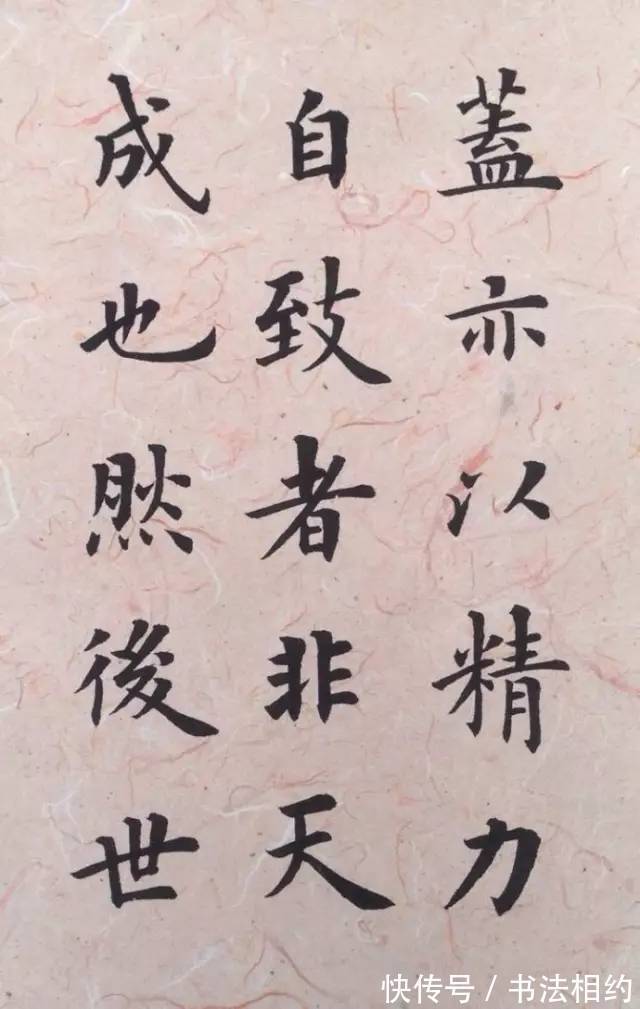 蓋亦以精力
自致者非天
成也然後世
快传号 / 书法相约